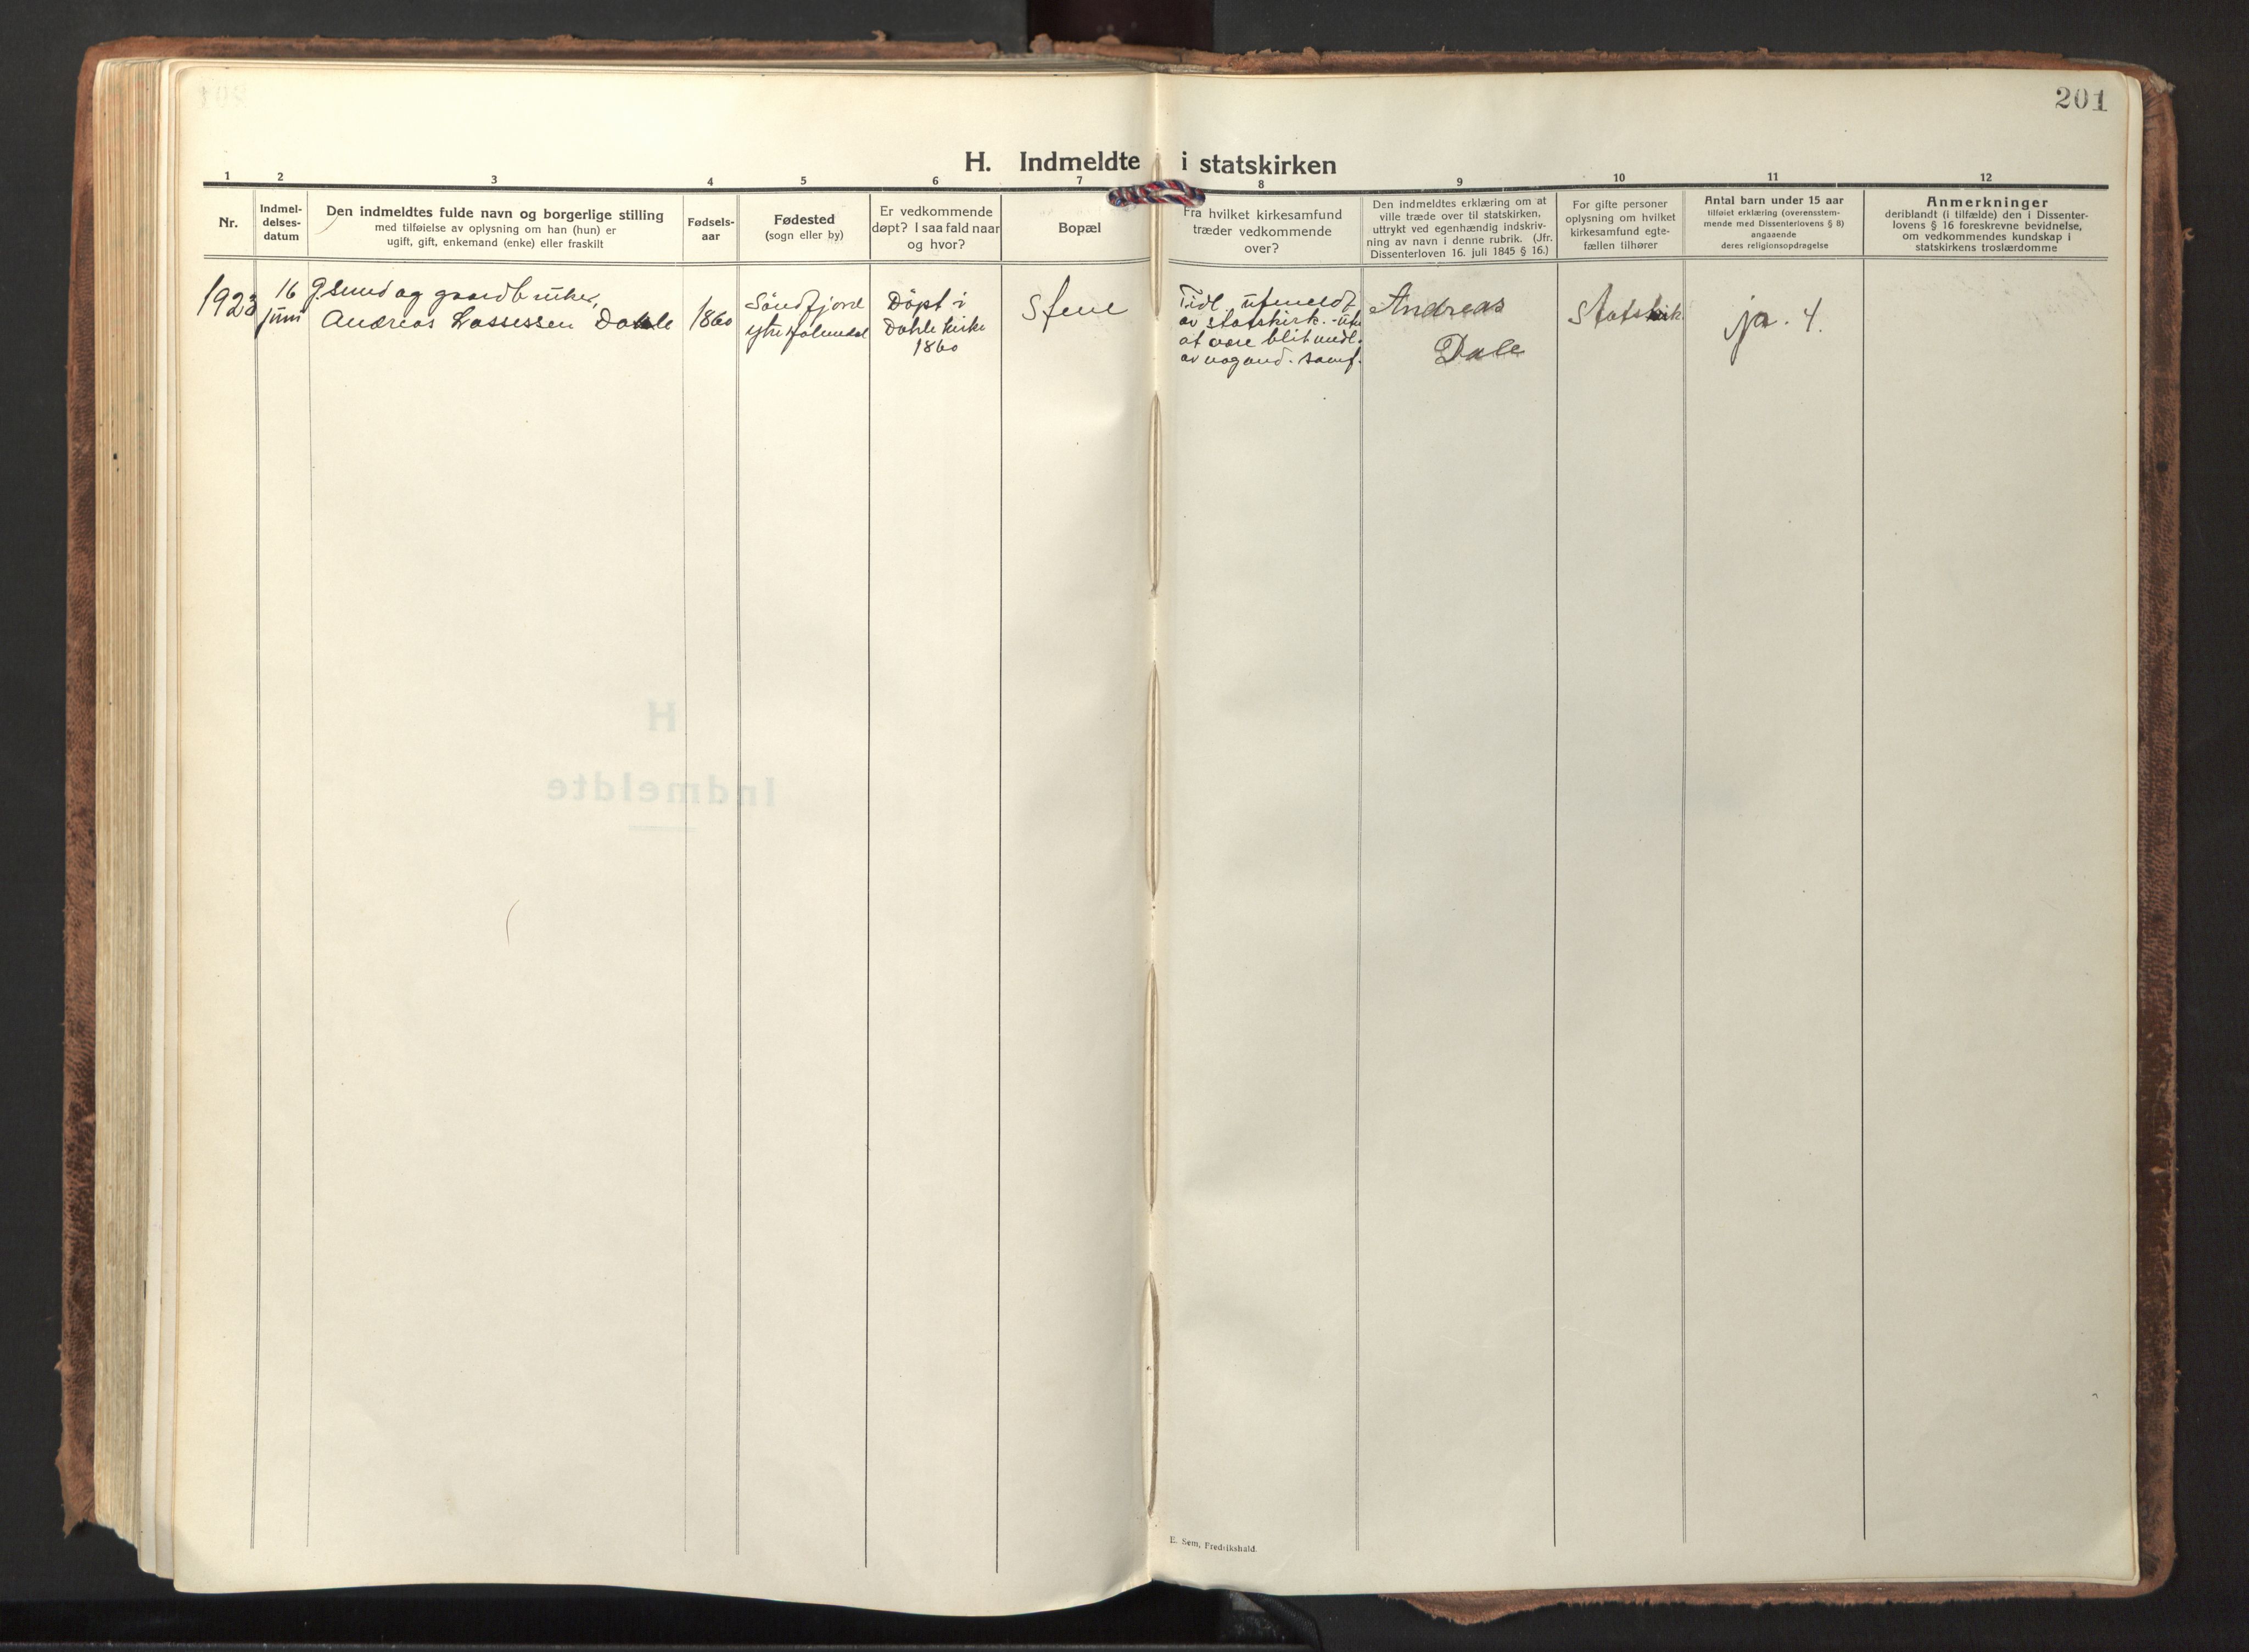 201
H. Indmeldte i statskirken
1 2 3 4 5 6 7 8 9 10 11 12
Nr.
Indmel-
delses-
datum
Den indmeldtes fulde navn og borgerlige stilling
med tilføielse av oplysning om han (hun) er
ugift, gift, enkemand (enke) eller fraskilt
Fødsels-
aar
Fødested
(sogn eller by)
Er vedkommende
døpt? I saa fald naar
og hvor?
Bopæl
Fra hvilket kirkesamfund
træder vedkommende
over?
Den indmeldtes erklæring om at
ville træde over til statskirken,
uttrykt ved egenhændig indskriv-
ning av navn i denne rubrik. (Jfr.
Dissenterloven 16. juli 1845 § 16.)
For gifte personer
oplysning om hvilket
kirkesamfund egte-
fællen tilhører
Antal barn under 15 aar
tilføiet erklæring (overensstem-
mende med Dissenterlovens § 8)
angaaende
deres religionsopdragelse
Anmerkninger
deriblandt (i tilfælde) den i Dissenter-
lovens § 16 foreskrevne bevidnelse,
om vedkommendes kundskap i
statskirkens troslærdomme
1923
16
juni
og gaardbruker,
Andreas Lassessen Dahle
1860
Søndfjord
Døpt i
Dahle kirke
1860
Stene
Tidl. utmeldt
av statskirk. - uten
at være blit medl.
av nog and. samf.
Andreas
Dale
Statskirk.
ja. 4.
H
Indmeldte
E. Sem, Fredrikshald.